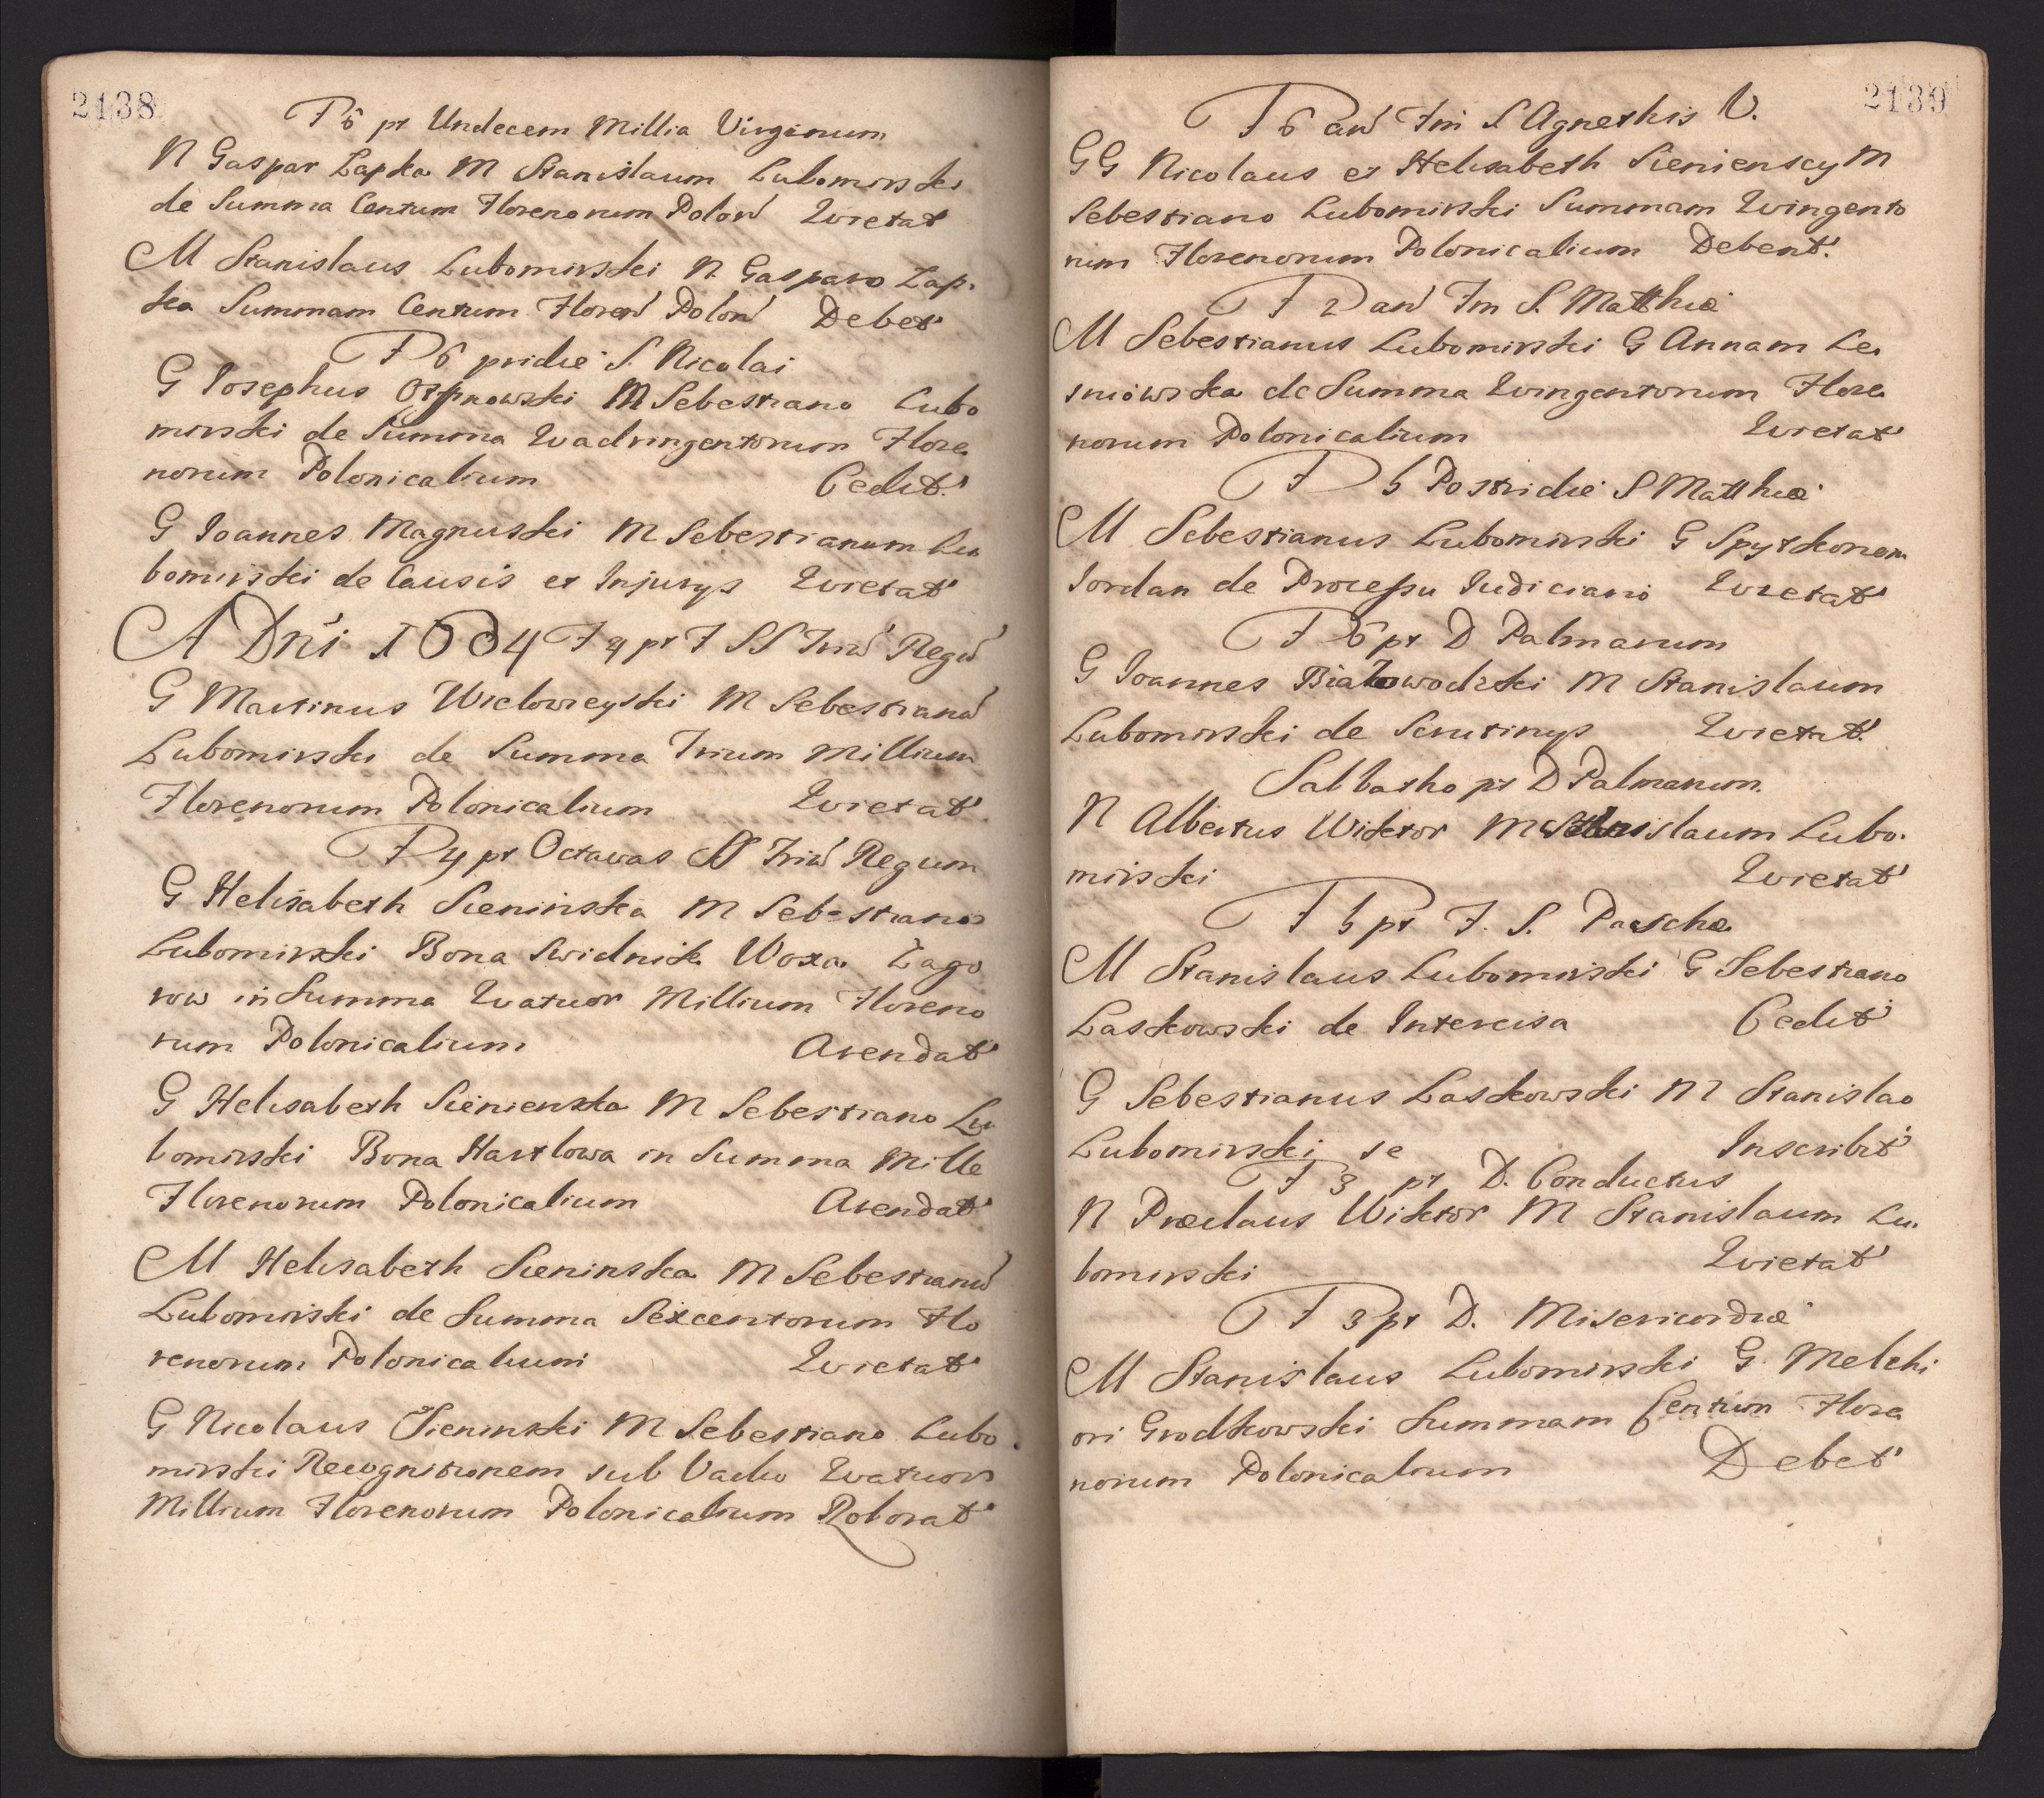 2138
F 6 pt Undecem Millia Virginum
N Gaspar Lapka M Stanislaum Lubomirski
de Summa Centum Florenorum Polon Qvietat
M Stanislaus Lubomirski N Gasparo Lap.
ka Summam Centum Floren Polon Debet
F 6 pridie S. Nicolai
G Iosephus M Sebestiano Lubo
mirski de Summa Qvadringentorum Flore
norum Polonicalium Cedit.
G Ioannes Magnuski M Sebestianum Lu
bomirski de Causis et Injurys Qvietat
A Dni 1604 F 4 pt F SS Triu Regu
G Martinus Wielowieyski M Sebestianu
Lubomirski de Summa Trium Millium
Florenorum Polonicalium Qvietat
F 4 pt Octavas SS Triu Regum
G Helisabeth Sieninska M Sebestiano
Lubomirski Bona Swidnik Woxa Lago
row in Summa Qvatuor Millium Floreno
rum Polonicalium Arendat
G Helisabeth Sienienska M Sebestiano Lu
bomirski Bona Hartlowa in Summa Mille
Florenorum Polonicalium Arendat
M Helisabeth Sieninska M Sebestianu
Lubomirski de Summa Sexcentorum Flo
renorum Polonicalium Qvietat
G Nicolaus Sieninski M Sebestiano Lubo
mirski Recognitionem sub Vadio Qvatuor
Millium Florenorum Polonicalium Roborat
2139
F 6 an Fm S Agnethis V.
GG Nicolaus et Helisabeth Sienienscy M
Sebestiano Lubomirski Summam Qvingento
rum Florenorum Polonicalium Debent.
F 2 an Fm S. Matthiæ
M Sebestianus Lubomirski G Annam Le
sniowska de Summa Qvingentorum Flore
norum Polonicalium Qvietat
F 5 Postridie S Matthiæ
M Sebestianus Lubomirski G Spytkonem
Iordan de Processu Iudiciario Qvietat
F 6 pt D Palmarum
G Ioannes Białowodzki M Stanislaum
Lubomirski de Scrutinys Qvietat.
Sabbatho pt D Palmarum.
N Albertus Wiktor M Stanislaum Lubo.
mirski Qvietat
F 5 pt F. S. Paschæ
M Stanislaus Lubomirski G Sebestiano
Laskowski de Intercisa Cedit
G Sebestianus Laskowski M Stanislao
Lubomirski se Inscribit
F 3 pt D. Conductus
N Præclaus Wiktor M Stanislaum Lu.
bomirski Qvietat
F 3 pt D. Misericordiæ
M Stanislaus Lubomirski G. Melchi
ori Grodkowski Summam Centum Flore
norum Polonicalium Debet